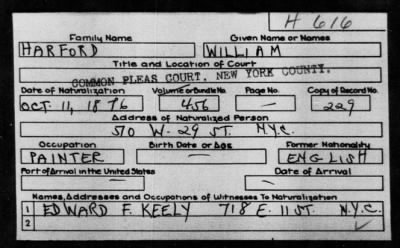 H 616
Family Name Given Name or Names
HARFORD WILLIAM
Title and Location of Court
COMMON PLEAS COURT, NEW YORK COUNTY.
Date of Naturalization Volume or Bundle No. Page No. Copy of Record No.
OCT. 11, 1876 456 — 229
Address of Naturalized Person
510 W. 29 ST. N.Y.C.
Occupation Birth Date or Age Former Nationality
PAINTER — ENGLISH
Port of Arrival in the United States Date of Arrival
— —
Names, Addresses and Occupations of Witnesses To Naturalization
1 EDWARD F. KEELY 718 E. 11 ST. N.Y.C.
2 ✓